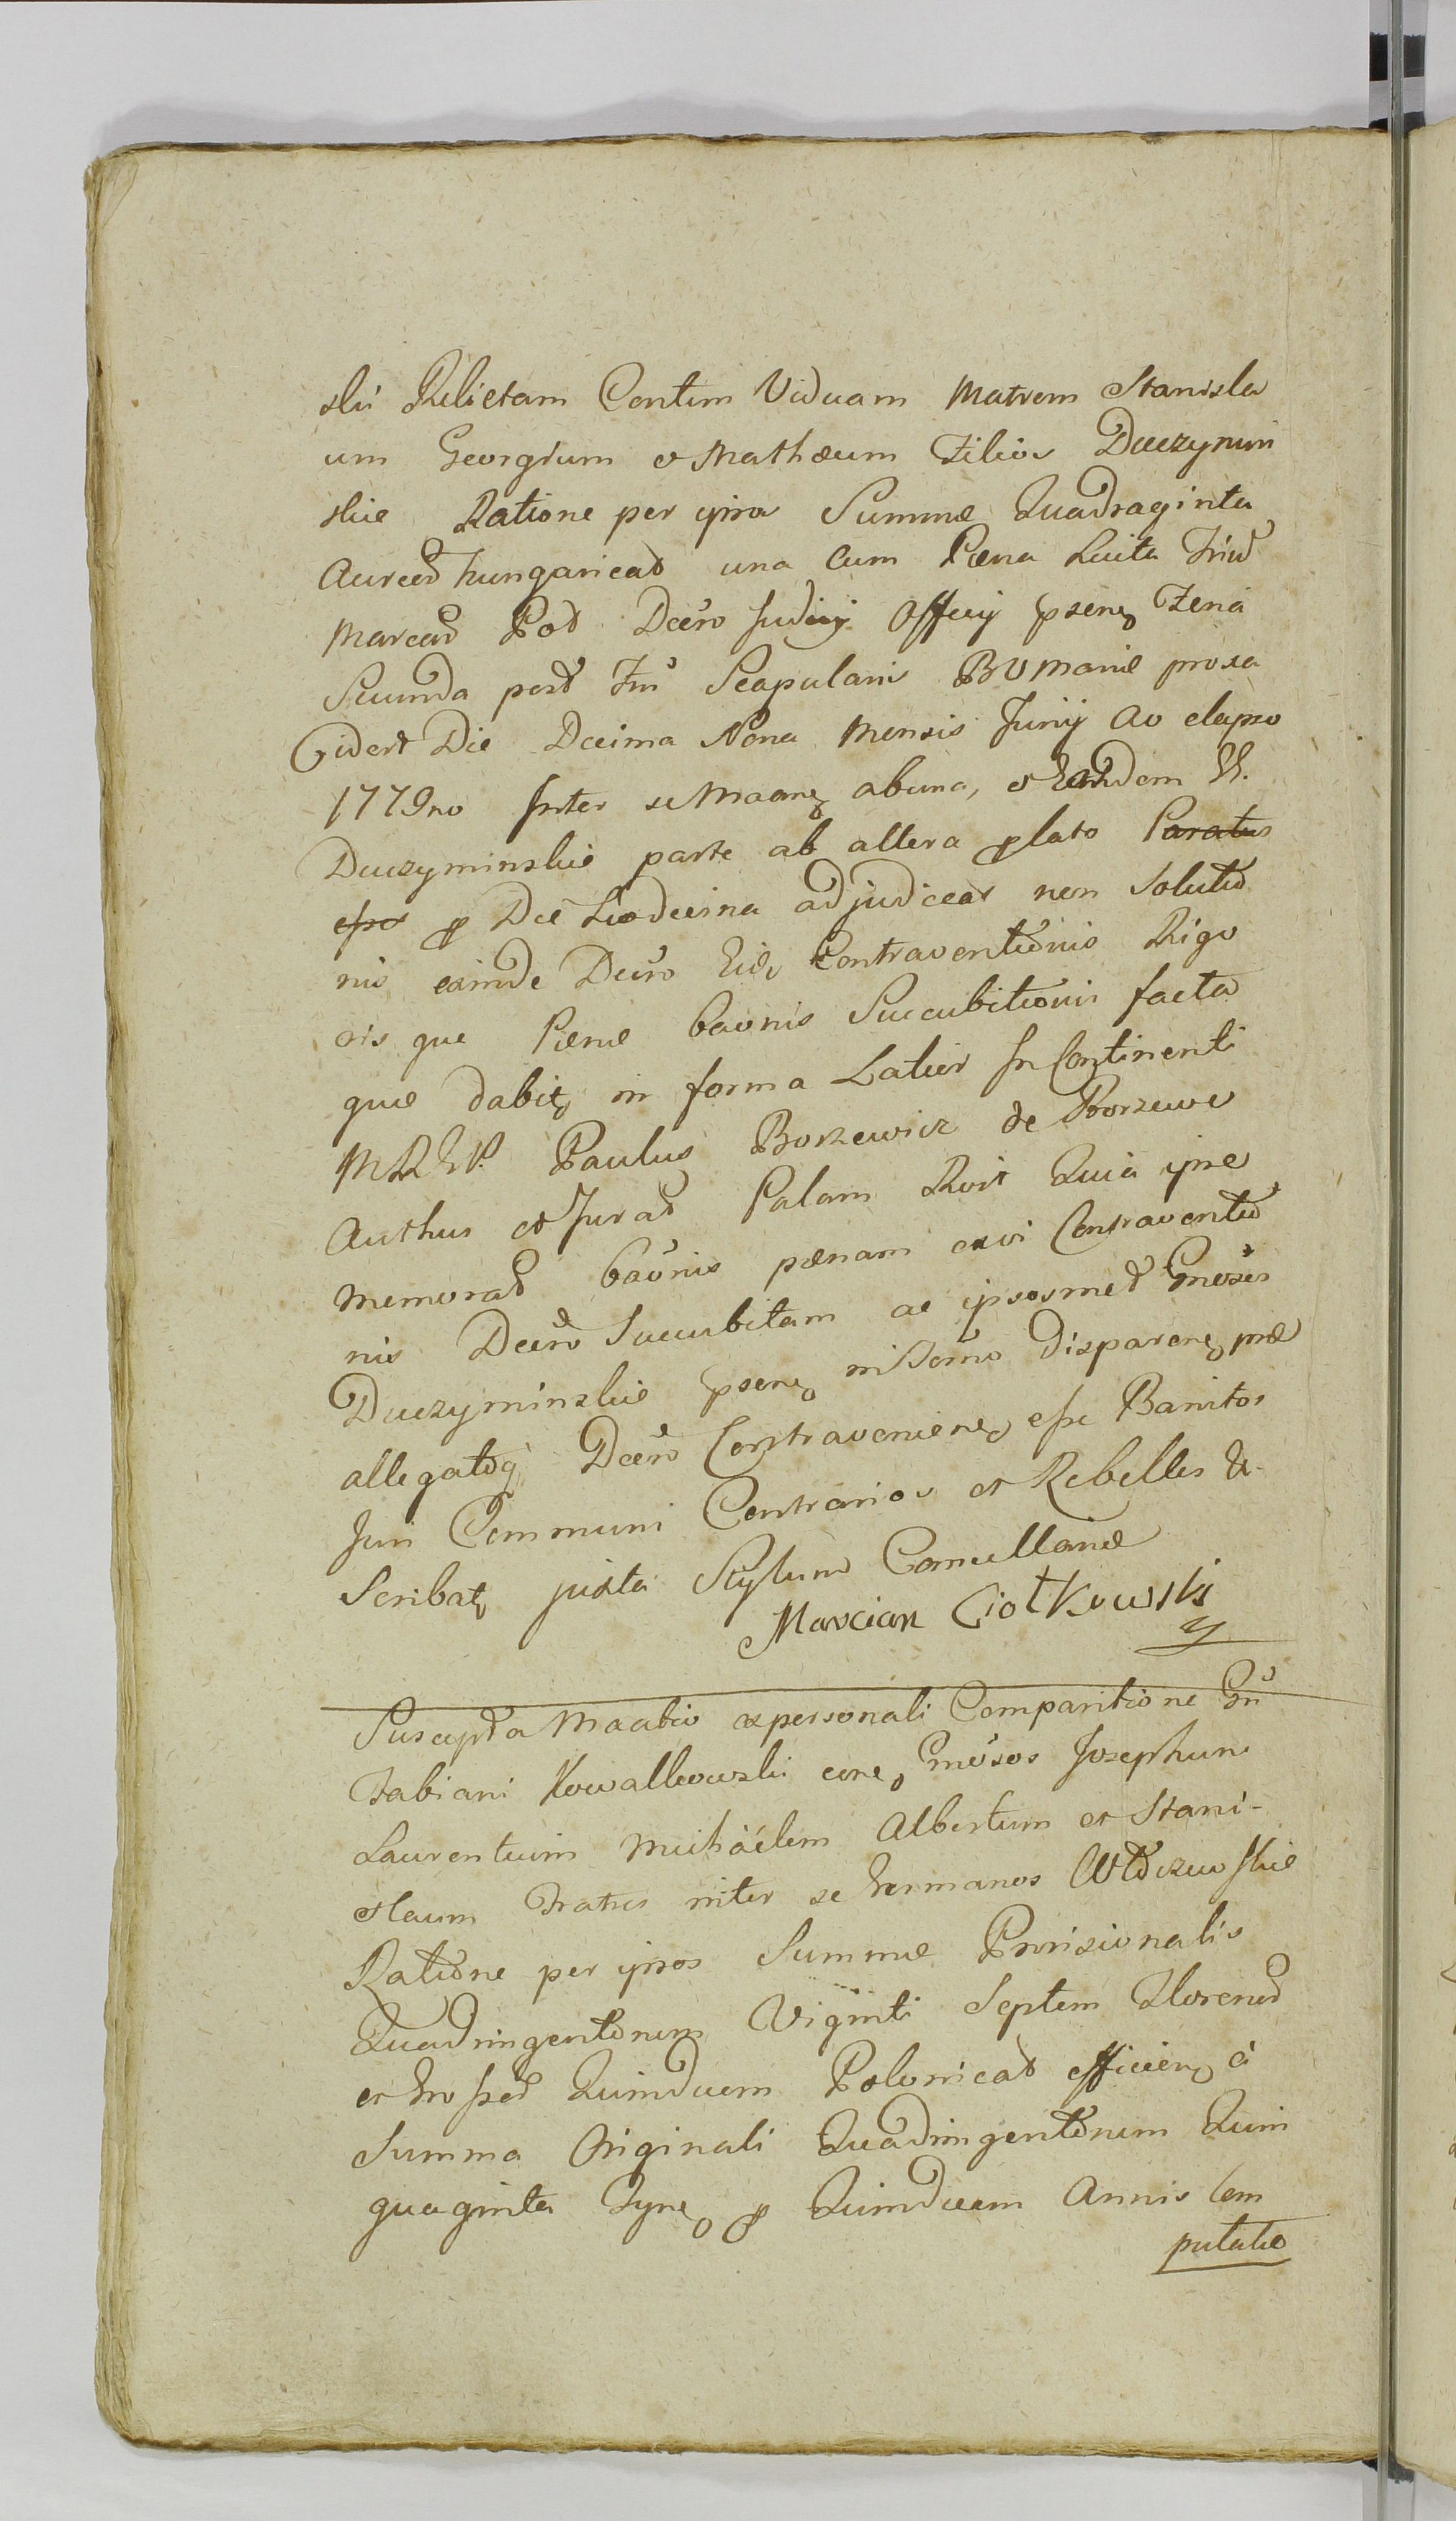 ski Relictam Contim Viduam Matrem Stanisla
um Georgium et Mathæum Filios Duczymin
skie Ratione per ipsos Summæ Quadraginta
Aureor hungaricat una cum Pæna Luita Triu
Marcar Pod Decro Judicij Officij psenz Feria
Secunda post Fm Scapularis BVMariæ proxa
Videlt Die Decima Nona Mensis Junij Ao elapso
1779no Inter se Maanz ab una, et Eosdem V.
Duczyminskie parte ab altera plato Paratus
esse p Die Duodecima adjudicat non Solutio
nis exinde Decro Eid Contraventionis Rigo
ris que Pænæ baonis Succubitionis facta
quæ dabitz in forma Latior In Continenti
MREV. Paulus Borzewicz de Borzewo
Authus et Jurat Palam Rvit Quia ipse
memorat baonis pænam exvi Contraventio
nis Decro Succubitam ac ipsosmet Gnosos
Duczyminskie psenz nissomo disparenz præ
allegatoq Decro Contravenienz esse Banitos
Juri Communi Contrarios et Rebelles &.
Scribatz juxta Stylum Cancellariæ
Marcian Ciotkowski
Suscepta Maatio ex personali Comparitione Gn
Fabiani Kowalkowski conz Gnosos Josephum
Laurentium Michäelem Albertum et Stani-
slaum Fratres inter se Germanos
Ratione per ipsos Summæ Provisionalis
Quadringentorum Viginti Septem Florenor
et Grossor Quindecem Polonicat efficienz à
Summa Originali Quadringentorum Quin
quaginta Tynz p Quindecem Annis Com
putatio